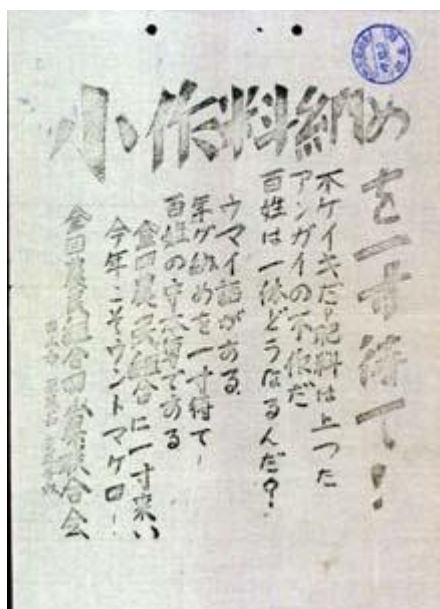 小作料納め
を一寸待て!
不ケイキだ!肥料は上つた
アンガイの不作だ
百姓は一体どうなるんだ?
ウマイ話がある
年グ納めを一寸待てー
百姓の守本尊である
全国農民組合に一寸来い
今年こそウントマケロー!
全国農民組合 聯合会